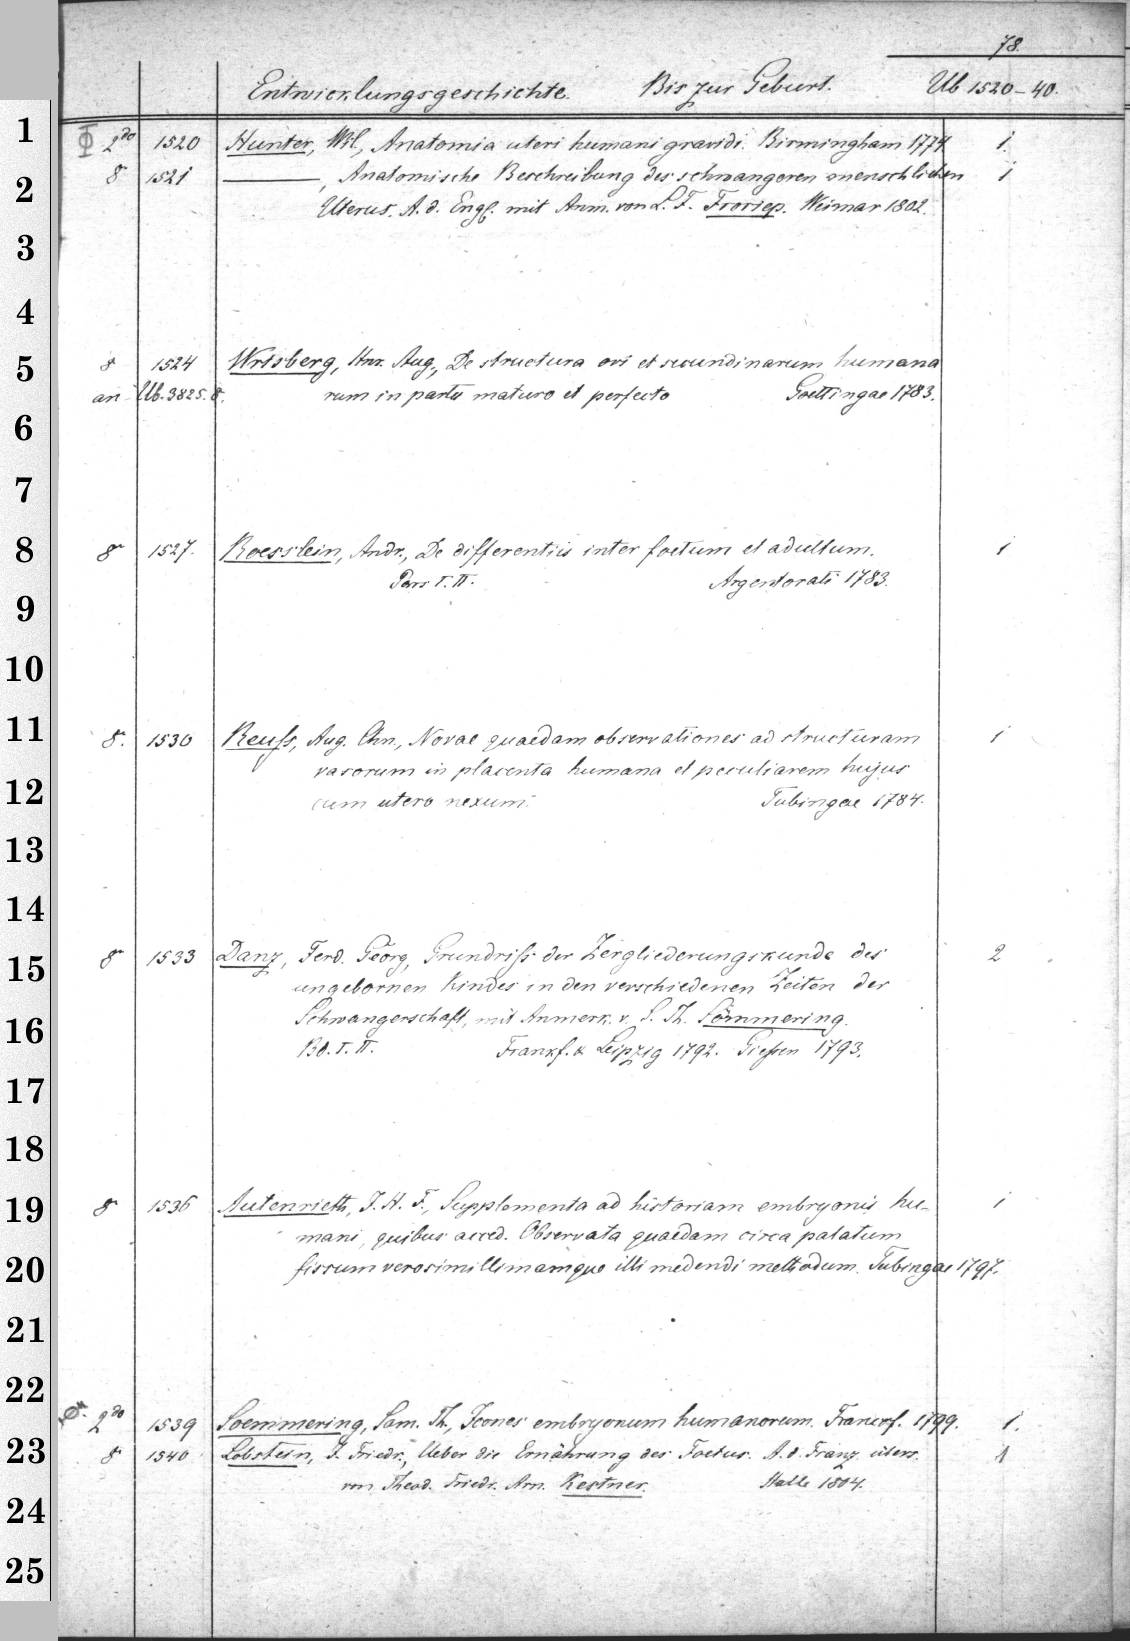 78.
Entwicklungsgeschichte. Bis zur Geburt. Ub 1520-40.
1 Φ 2do 1520 Hunter, Wil, Anatomia uteri humani gravidi. Birmingham 1774. 1.
2 8 1521 ———, Anatomische Beschreibung des schwangeren menschlichen 1
Uterus. A. d. Engl. mit Anm. von L. F. Froriep. Weimar 1802.
3
4
5 8 1524 Wrisberg, Hnr. Aug., De structura ovi et secundinarum humana
an Ub. 3825. 8. rum in partu maturo et perfecto Goettingae 1783.
6
7
8 8 1527. Roesslein, Andr., De differentiis inter foetum et adultum. 1
Pars I. II. Argentorati 1783.
9
10
11 8. 1530 Reuß, Aug. Chn., Novae quaedam observationes ad structuram 1
vasorum in placenta humana et peculiarem hujus
12 cum utero nexum. Tubingae 1784.
13
14
15 8 1533 Danz, Ferd. Georg, Grundriß der Zergliederungskunde des 2
ungebornen Kindes in den verschiedenen Zeiten der
16 Schwangerschaft, mit Anmerk. v. S. Th. Sömmering.
Bd. I. II. Frankf. & Leipzig 1792. Gießen 1793.
17
18
19 8 1536 Autenrieth, J. H. F., Supplementa ad historiam embryonis hu- 1
mani, quibus acced. Observata quaedam circa palatum
20 fissum verosimillimamque illi medendi methodum. Tubingae 1797.
21
22
2do 1539 Soemmering, Sam. Th., Icones embryonum humanorum. Francof. 1799. 1.
23 8 1540 Lobstein, J. Friedr., Ueber die Ernährung des Foetus. A. d. Franz. übers. 1
von Theod. Friedr. Arn. Kestner. Halle 1804.
24
25